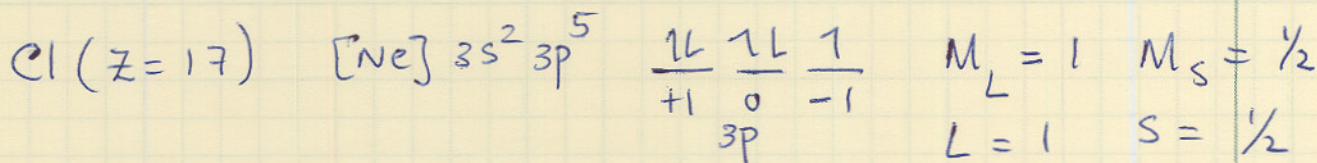 Cl (Z=17) [Ne] 3s² 3p⁵ ⥮ ⥮ ↿ M_L = 1 M_S = ½
+1 0 -1
3p L = 1 S = ½